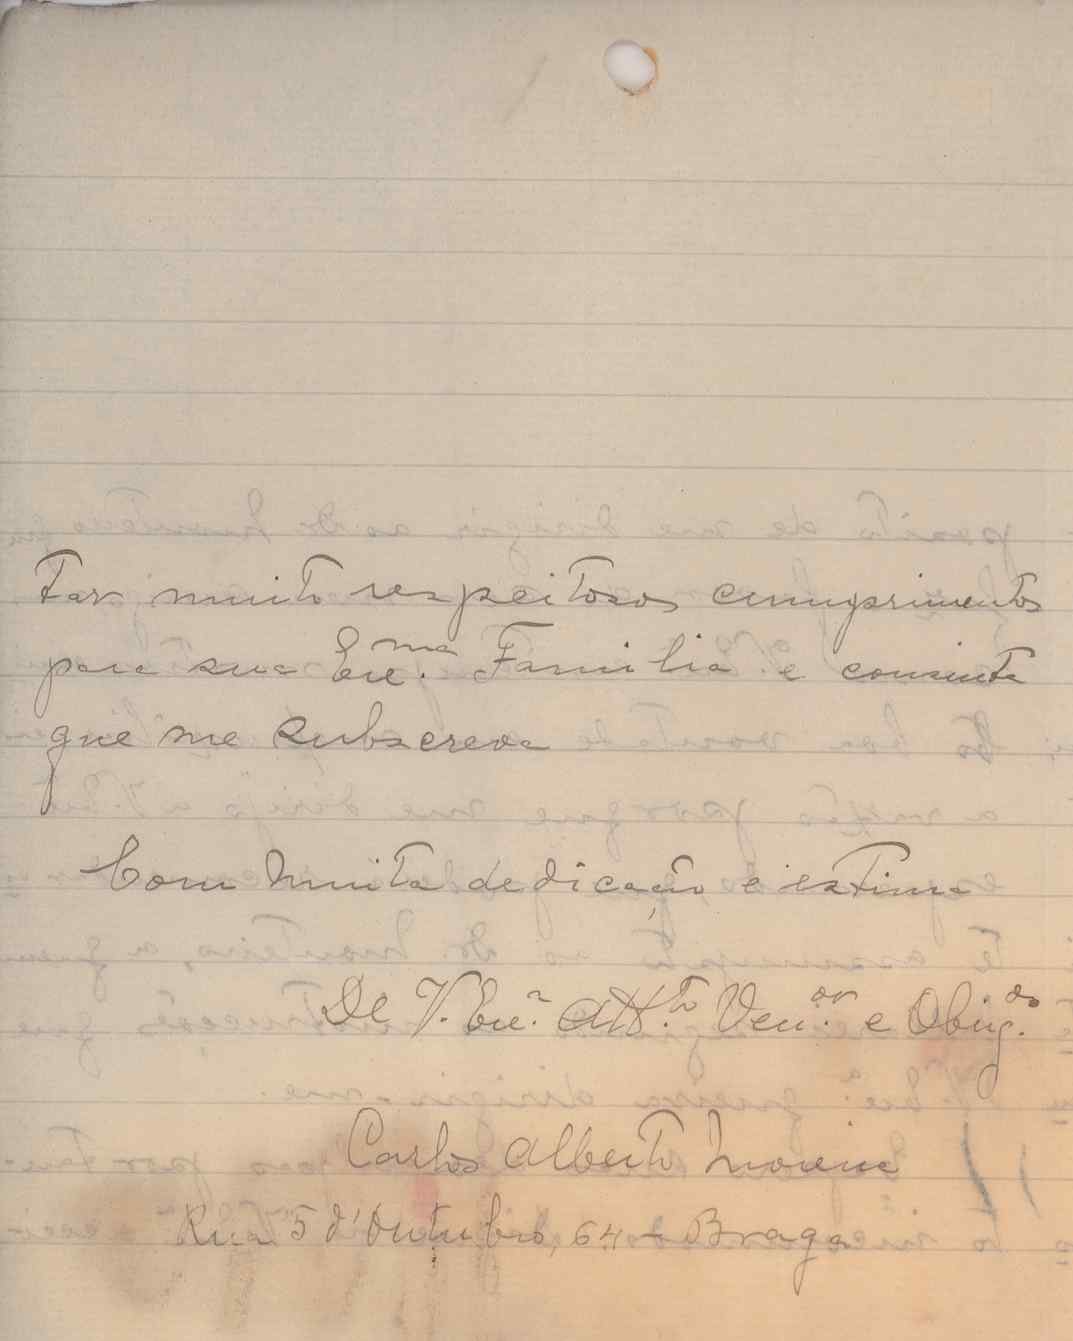 tar muito respeitosos cumprimentos
para sua Exc.ma Familia e consinta
que me subscreva
Com muita dedicação e estima
De V. Exc.a Att.to Ven.or e Obrig.do
Carlos Alberto Moreira
Rua 5 d'Outubro, 64 - Braga